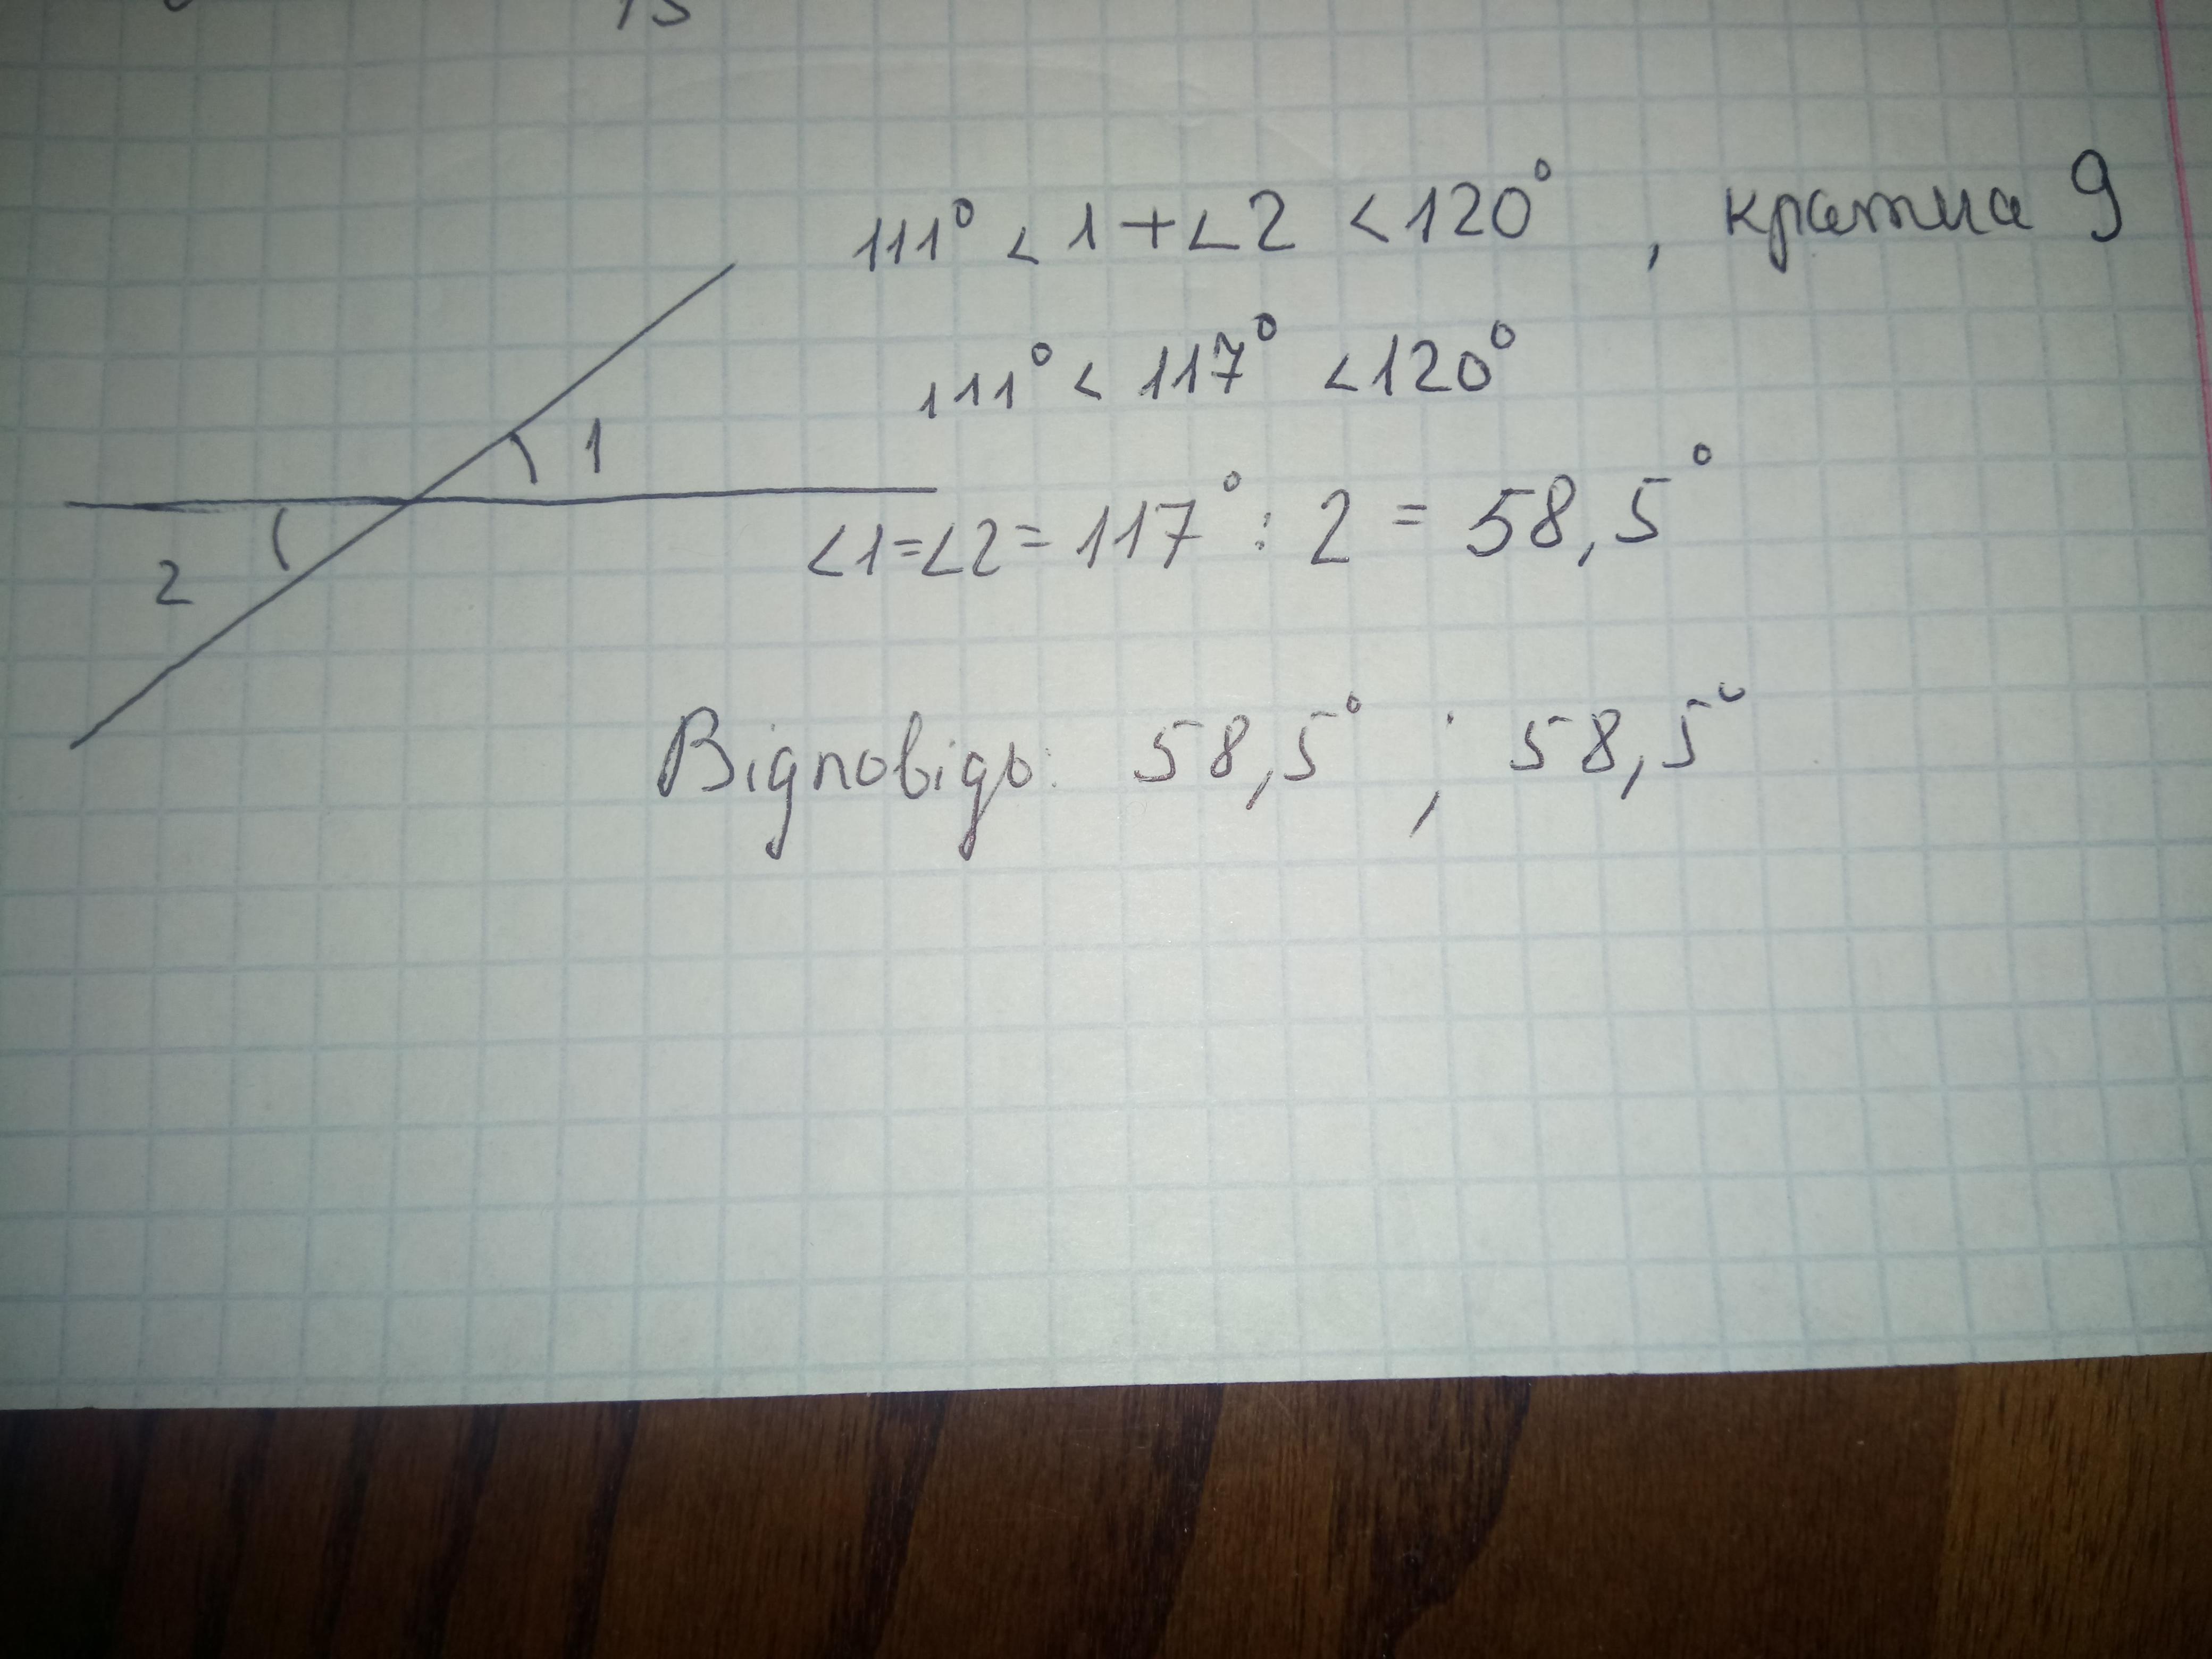 111° < 1 + ∠2 < 120° , кратна 9
111° < 117° < 120°
1
∠1=∠2= 117° : 2 = 58,5°
2
Відповідь: 58,5° ; 58,5°